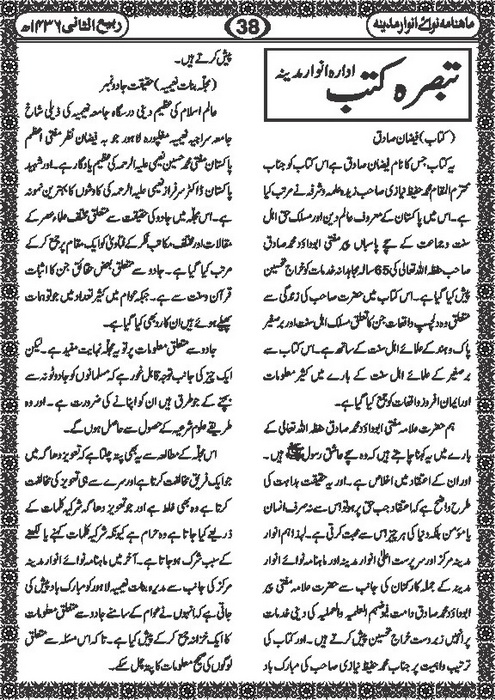 ماہنامہ نوائے انوار مدینہ
38
ربیع الثانی ۱۴۳۶ھ
تبصرہ کتب
ادارہ انوار مدینہ
(کتاب) فیضان صادق
یہ کتاب جس کا نام فیضان صادق ہے اس کتاب کو جناب
محترم المقام محمد حفیظ نیازی صاحب زیدہ علمہ و شرفہ نے مرتب کیا
ہے۔ اس میں پاکستان کے معروف عالم دین اور مسلک حق اہل
سنت و جماعت کے سچے پاسباں پیر مفتی ابوداؤد محمد صادق
صاحب حفظہ اللہ تعالی کی 65 سالہ مجاہدانہ خدمات کو خراج تحسین
پیش کیا گیا ہے۔ اس کتاب میں حضرت صاحب کی زندگی سے
متعلق وہ دلچسپ واقعات جن کا تعلق مسلک اہل سنت اور برصغیر
پاک و ہند کے علمائے اہل سنت کے ساتھ ہے۔ اس کتاب سے
برصغیر کے علمائے اہل سنت کے بارے میں کثیر معلومات
اور ایمان افروز واقعات کو جمع کیا گیا ہے۔
ہم حضرت علامہ مفتی ابوداؤد محمد صادق حفظہ اللہ تعالی کے
بارے میں یہ کہنا چاہتے ہیں کہ وہ سچے عاشق رسول ﷺ ہیں۔
اور ان کے اعتقاد میں اخلاص ہے۔ اور یہ حقیقت بداہت کی
طرح واضح ہے کہ اعتقاد جب حق پر ہو تو اس سے نہ صرف انسان
یا مؤمن بلکہ دنیا کی ہر چیز اس سے محبت کرتی ہے۔ لہذا ہم انوار
مدینہ مرکز اور سرپرست اعلیٰ انوار مدینہ اور ماہنامہ نوائے انوار
مدینہ کے جملہ کارکنان کی جانب سے حضرت علامہ مفتی پیر
ابوداؤد محمد صادق دامت فیوضہم العلمیہ والعملیہ کی دینی خدمات
پر انہیں زبردست خراج تحسین پیش کرتے ہیں۔ اور کتاب کی
ترتیب و اہمیت پر جناب محمد حفیظ نیازی صاحب کی مبارک باد
پیش کرتے ہیں۔
(مجلہ بنات نعیمیہ) حقیقت جادو نمبر
عالم اسلام کی عظیم دینی درسگاہ جامعہ نعیمیہ کی ذیلی شاخ
جامعہ سراجیہ نعیمیہ مغلپورہ لاہور جو بہ فیضان نظر مفتی اعظم
پاکستان مفتی محمد حسین نعیمی علیہ الرحمہ کی عظیم یادگار ہے۔ اور شہید
پاکستان ڈاکٹر سرفراز نعیمی علیہ الرحمہ کی کاوشوں کا بہترین نمونہ
ہے۔ اس مجلہ میں جادو کی حقیقت سے متعلق مختلف علماء عصر کے
مقالات اور مختلف مکاتب فکر کے فتاوی کو ایک مقام پر جمع کر کے
مرتب کیا گیا ہے۔ جادو سے متعلق بعض حقائق جن کا اثبات
قرآن و سنت سے ہے۔ جبکہ عوام میں کثیر تعداد میں جو توہمات
پھیلے ہوئے ہیں ان کا رد بھی کیا گیا ہے۔
جادو سے متعلق معلومات پر تو یہ مجلہ نہایت مفید ہے۔ لیکن
ایک چیز کی جانب توجہ قابل غور ہے کہ مسلمانوں کو جادو ٹونہ سے
بچنے کے جو طرق ہیں ان کو اپنانے کی ضرورت ہے۔ اور وہ
طریقے علوم شرعیہ کے حصول سے حاصل ہوں گے۔
اس مجلہ کے مطالعہ سے یہ بھی پتہ چلتا ہے کہ تعویز دھاگہ میں
جو ایک فریق مخالفت کرتا ہے اور سرے سے ہی تعویز کی مخالفت
کرتا ہے وہ بھی غلط ہے اور جو تعویز دھاگہ شرکیہ کلمات کے
ذریعے کیا جاتا ہے وہ حرام ہے کیونکہ شرکیہ کلمات کہنے یا لکھنے
کے سبب شرک ہو جاتا ہے۔ آخر میں ماہنامہ نوائے انوار مدینہ
مرکز کی جانب سے مدیرہ بنات نعیمیہ لاہور کو مبارک باد پیش کی
جاتی ہے کہ انہوں نے عوام کے سامنے جادو سے متعلق معلومات
کا ایک خزانہ جمع کر کے پیش کیا ہے۔ تاکہ اس مسئلہ سے متعلق
لوگوں کی صحیح معلومات کا پتہ چل سکے۔